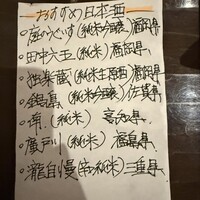 おすすめ日本酒
・庭のうぐいす(純米吟醸)福岡県
・田中六五(純米)福岡県
・独楽蔵(純米生原酒)福岡県
・鍋島(純米吟醸)佐賀県
(純米)高知県
・廣戸川(純米)福島県
・瀧自慢(辛口純米)三重県